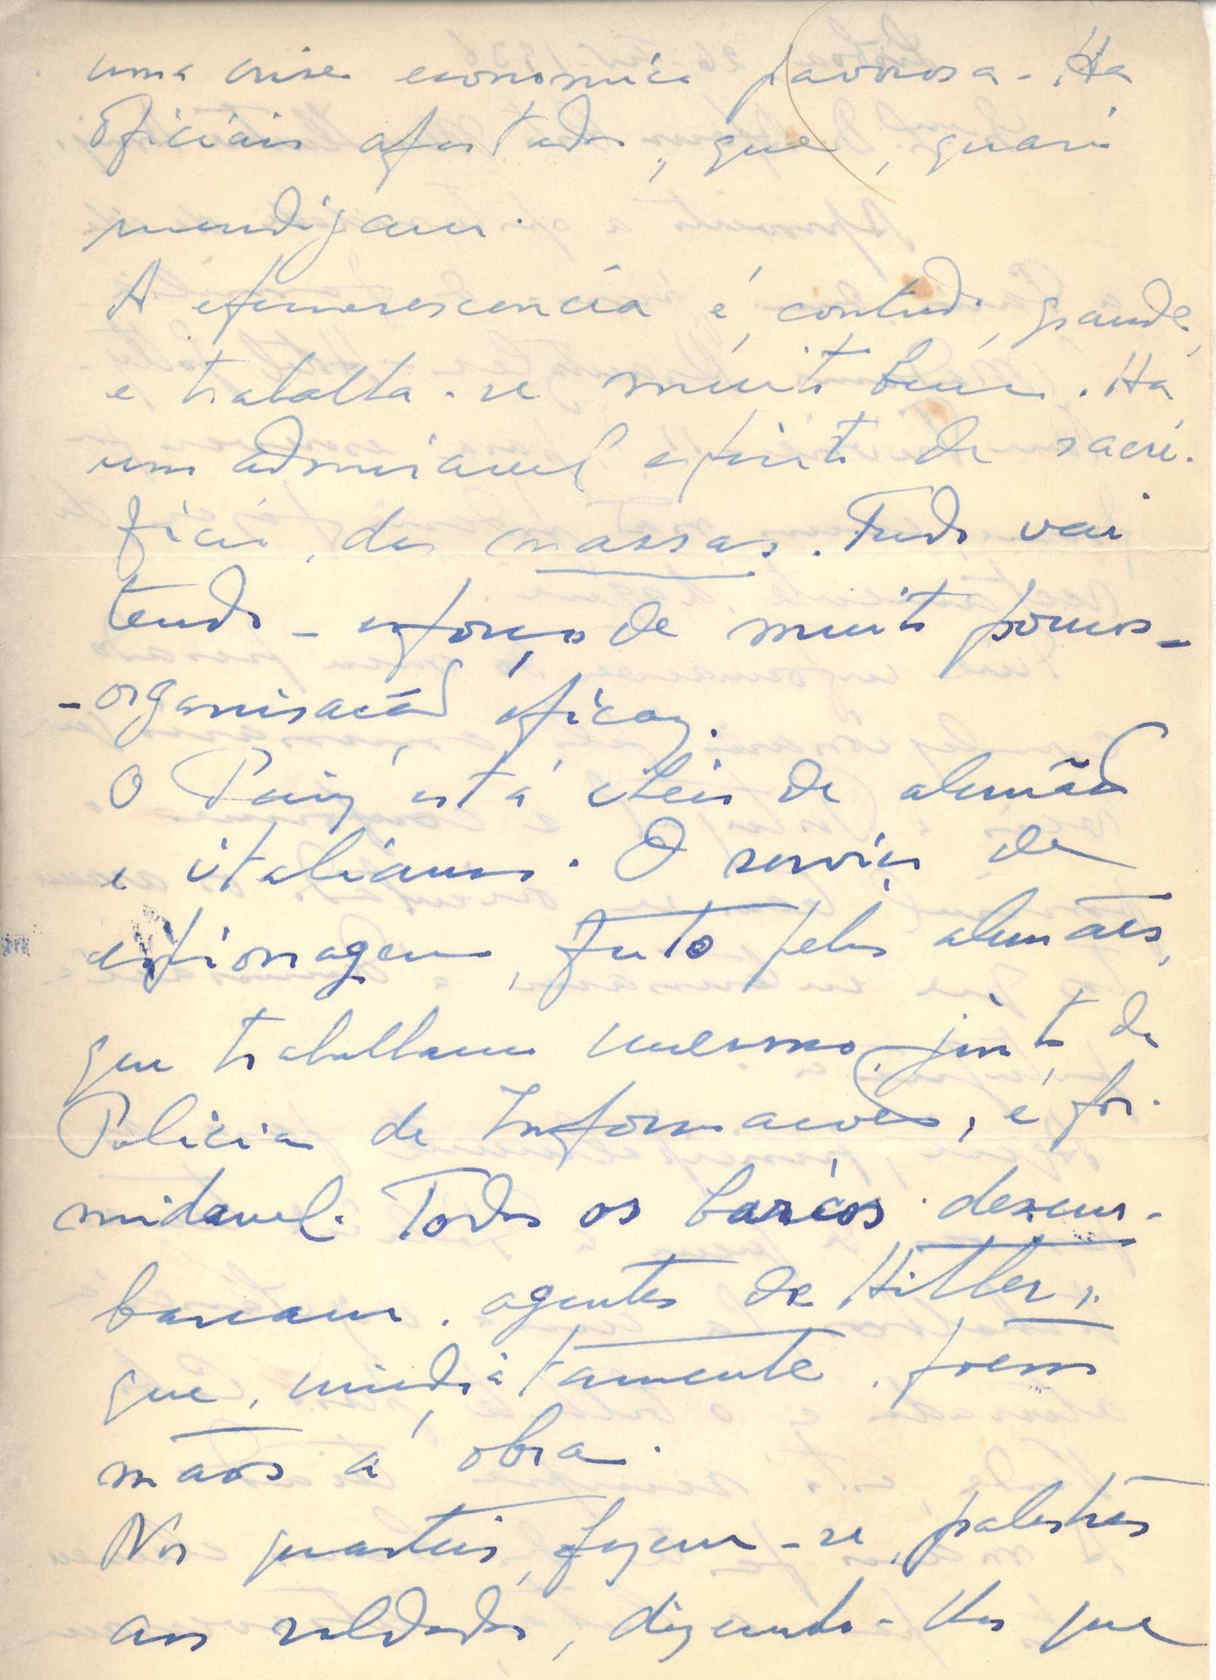 uma crise economica pavorosa. Ha
Oficiais afastados, que, quasi
mendigam.
A efervescencia é, contudo, grande,
e trabalha-se muito bem. Ha
um admiravel espirito de sacri-
ficio, das massas. Tudo vai
tendo - esforços de muito poucos -
- organisação eficaz.
O Paiz está cheio de alemães
e italianos. O serviço de
espionagem, feito pelos alemães,
que trabalham mesmo junto da
Policia de Informações, é for-
midavel. Todos os barcos desem-
barcam agentes de Hitler,
que, imediatamente, poem
mãos á obra.
Nos quarteis, fazem-se palestras
aos soldados, dizendo-lhes que